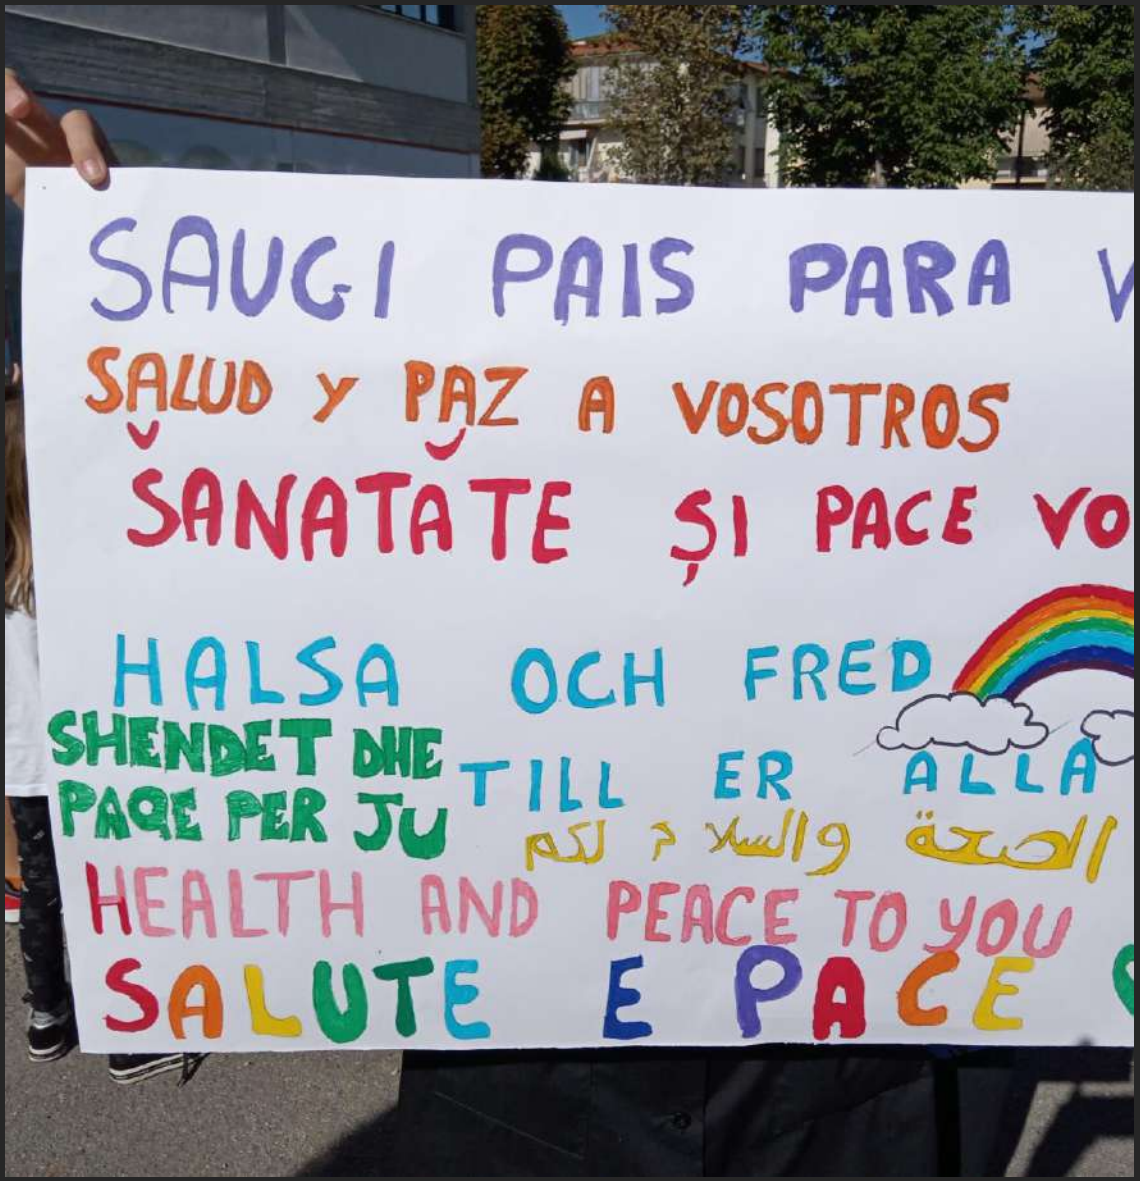 SAUGI PAIS PARA V
SALUD Y PAZ A VOSOTROS
SANATĂTE ȘI PACE VO
HALSA OCH FRED
SHENDET DHE
PAQE PER JU
TILL ER ALLA
الصحة والسلام لكم
HEALTH AND PEACE TO YOU
SALUTE E PACE